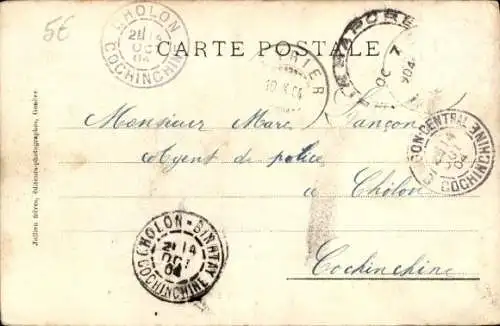 5€
CARTE POSTALE
CHOLON
21 14
OC
04
COCHINCHINE
10 X 04
SINGAPORE
OC 7
904
Monsieur Marc Jançon
Agent de police
à Chôlon
Cochinchine
CENTRAL
COCHINCHINE
CHOLON-BINHTAY
21 14
OC
04
COCHINCHINE
Jullien frères, éditeurs-photographes, Genève